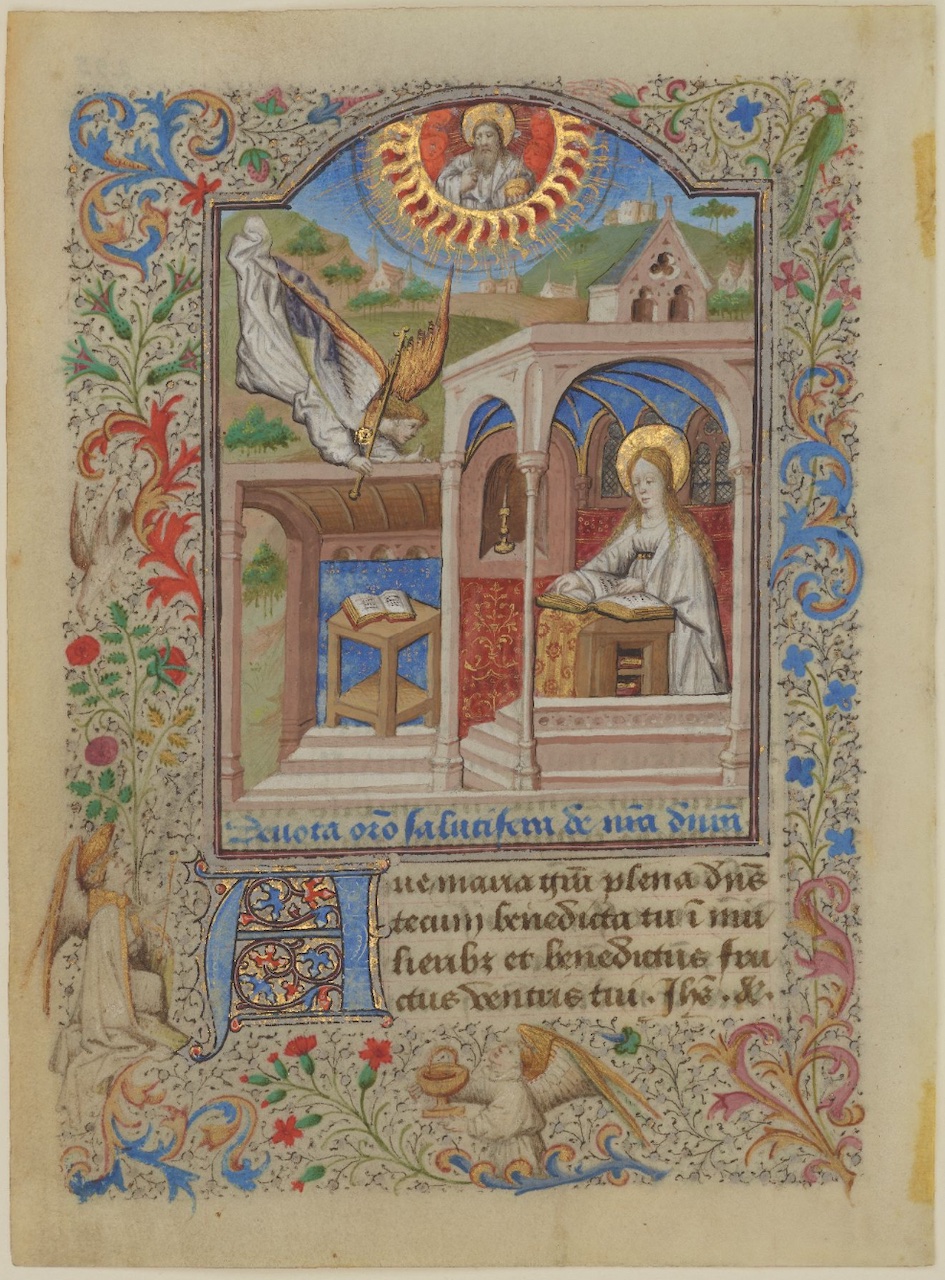 Deuota orō salutifera de nr̄a dn̄m
Aue maria grā plena dn̄s
tecum benedicta tu ī mu
lieribꝫ et benedictus fru
ctus ventris tui . Jhs̄ . &c.